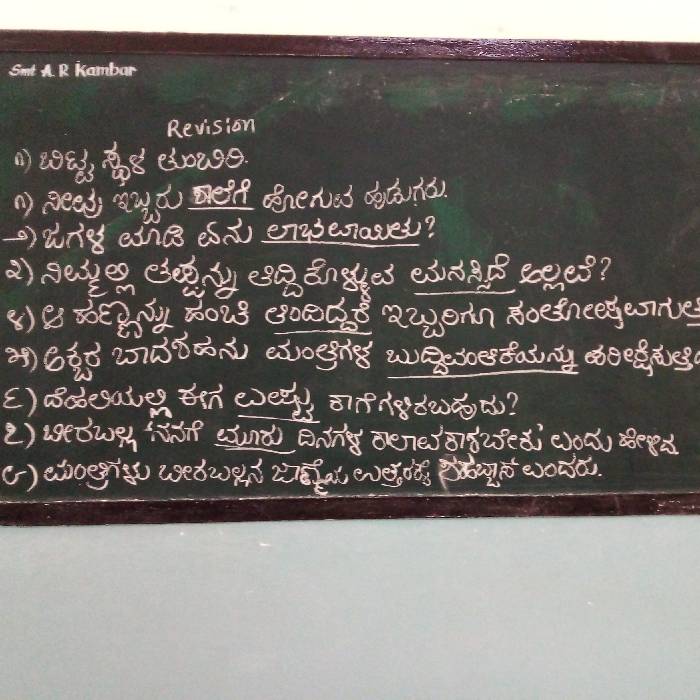 Smt A R Kambar
Revision
೧) ಬಿಟ್ಟ ಸ್ಥಳ ತುಂಬಿರಿ.
೧) ನೀವು ಇಬ್ಬರು ಶಾಲೆಗೆ ಹೋಗುವ ಹುಡುಗರು.
೨) ಜಗಳ ಮಾಡಿ ಏನು ಲಾಭವಾಯಿತು?
೩) ನಿಮ್ಮಲ್ಲಿ ತಪ್ಪನ್ನು ತಿದ್ದಿಕೊಳ್ಳುವ ಮನಸ್ಸಿದೆ ಅಲ್ಲವೆ?
೪) ಆ ಹಣ್ಣನ್ನು ಹಂಚಿ ತಿಂದಿದ್ದರೆ ಇಬ್ಬರಿಗೂ ಸಂತೋಷವಾಗುತ್ತ
೫) ಅಕ್ಬರ ಬಾದಶಹನು ಮಂತ್ರಿಗಳ ಬುದ್ಧಿವಂತಿಕೆಯನ್ನು ಪರೀಕ್ಷಿಸುತ್ತಿದ
೬) ದೆಹಲಿಯಲ್ಲಿ ಈಗ ಎಷ್ಟು ಕಾಗೆಗಳಿರಬಹುದು?
೭) ಬೀರಬಲ್ಲ 'ನನಗೆ ಮೂರು ದಿನಗಳ ಕಾಲಾವಕಾಶಬೇಕು' ಎಂದು ಹೇಳಿದ
೮) ಮಂತ್ರಿಗಳು ಬೀರಬಲ್ಲನ ಜಾಣ್ಮೆಯ ಉತ್ತರಕ್ಕೆ ಶಹಬ್ಬಾಸ್ ಎಂದರು.